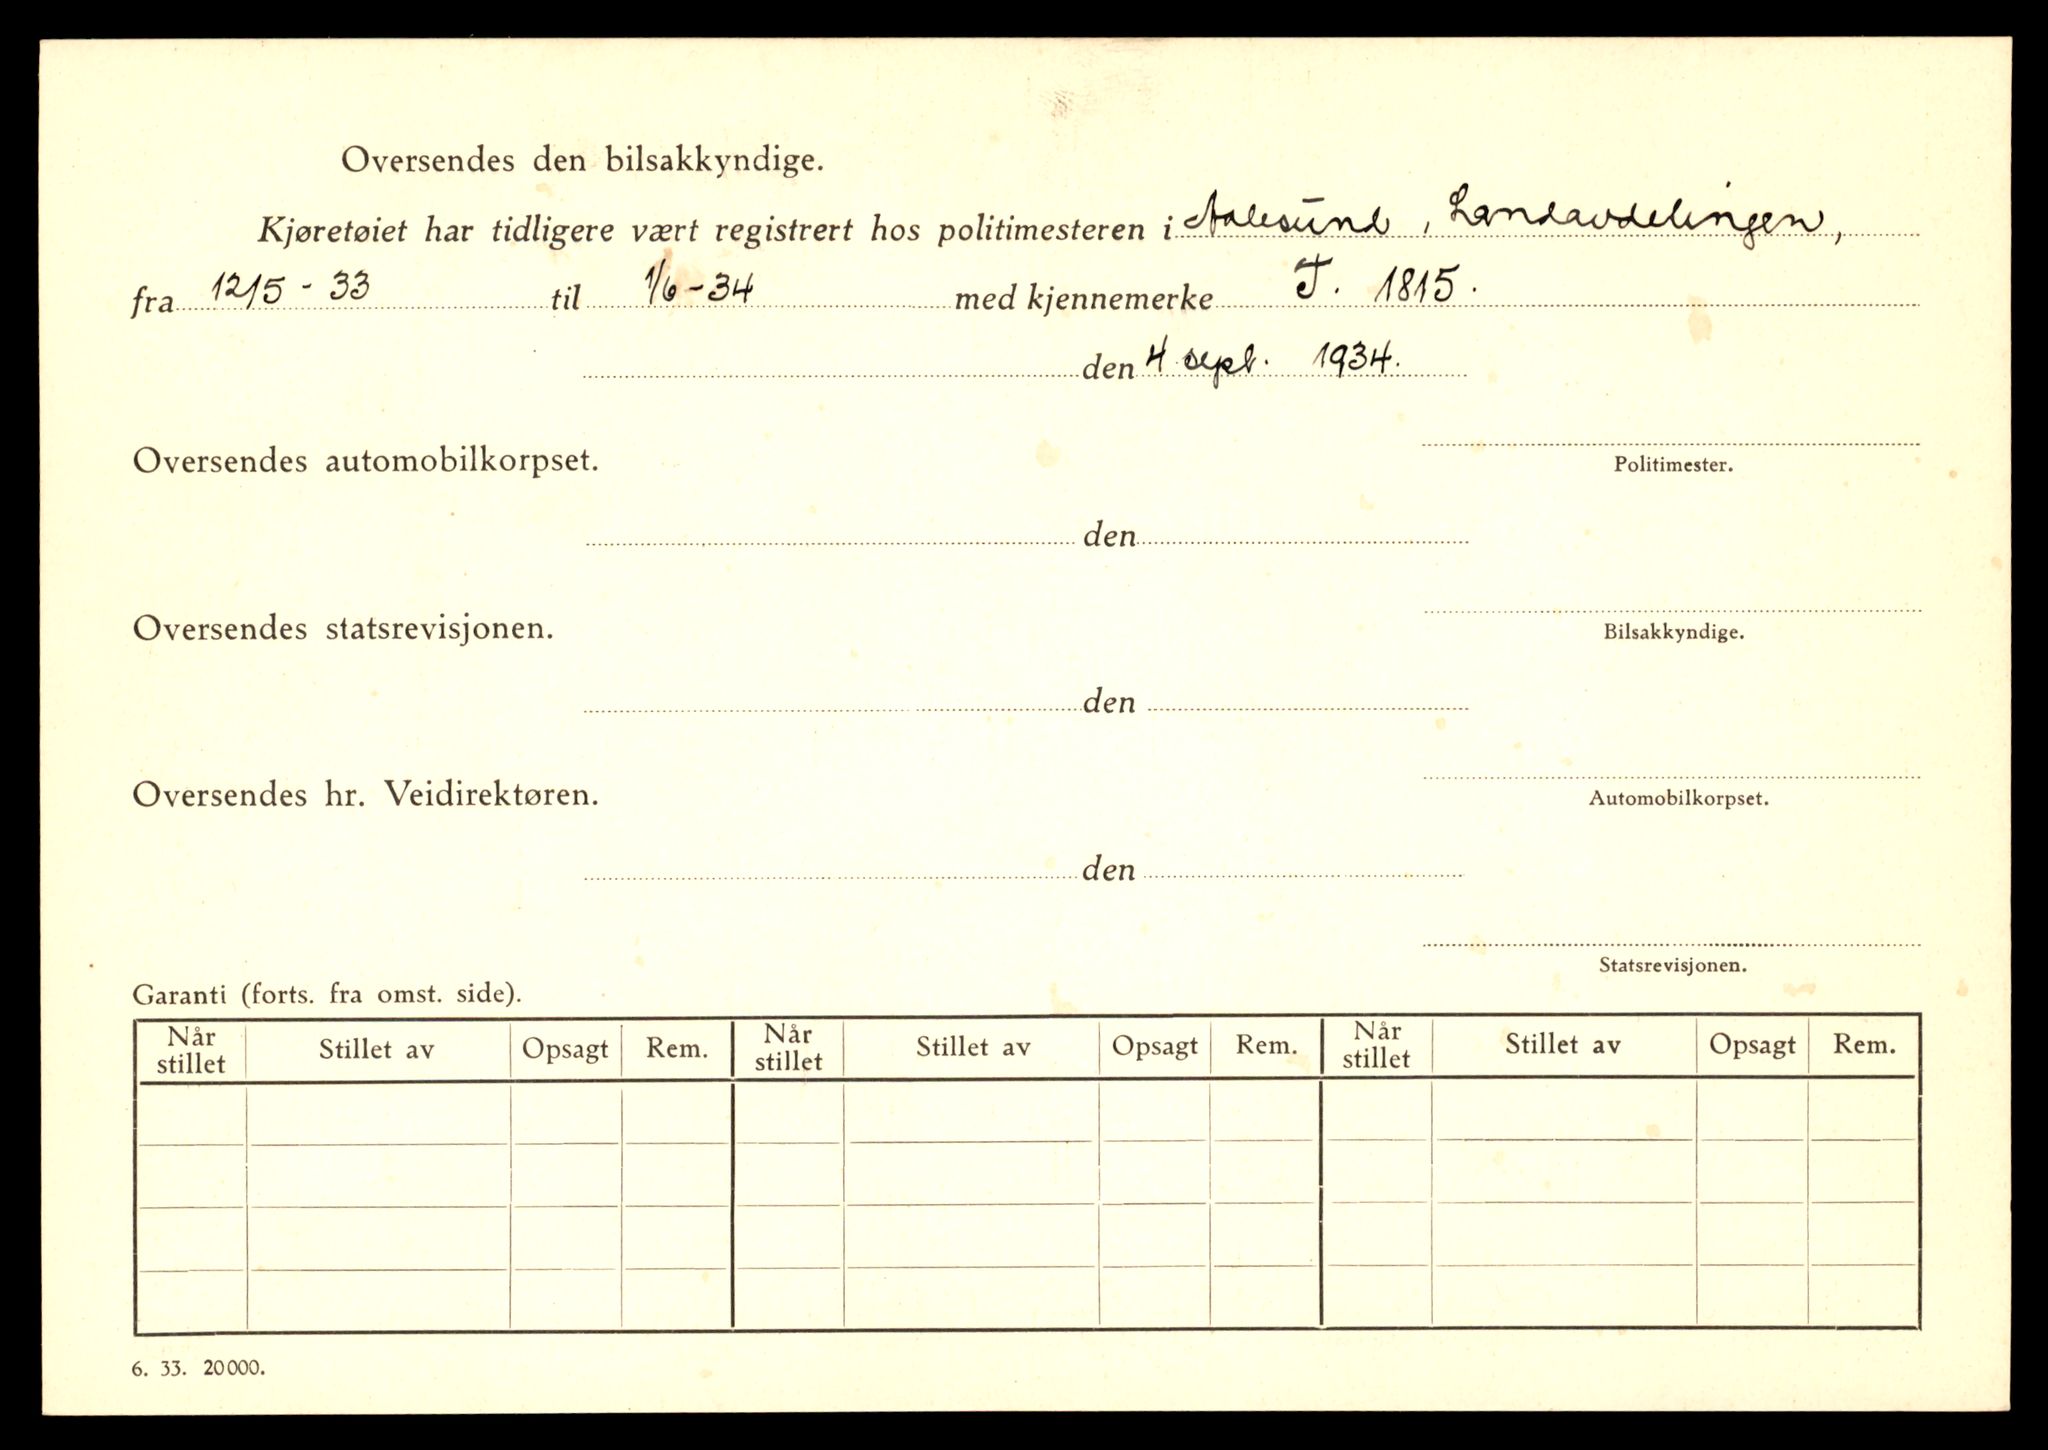 Oversendes den bilsakkyndige.
Kjøretøiet har tidligere vært registrert hos politimesteren i Aalesund, Landavdelingen,
fra 12/5 - 33 til 1/6 - 34 med kjennemerke T. 1815.
den 4 sept. 1934.
Politimester.
Oversendes automobilkorpset.
den
Bilsakkyndige.
Oversendes statsrevisjonen.
den
Automobilkorpset.
Oversendes hr. Veidirektøren.
den
Statsrevisjonen.
Garanti (forts. fra omst. side).
Når stillet Stillet av Opsagt Rem. Når stillet Stillet av Opsagt Rem. Når stillet Stillet av Opsagt Rem.
6. 33. 20000.